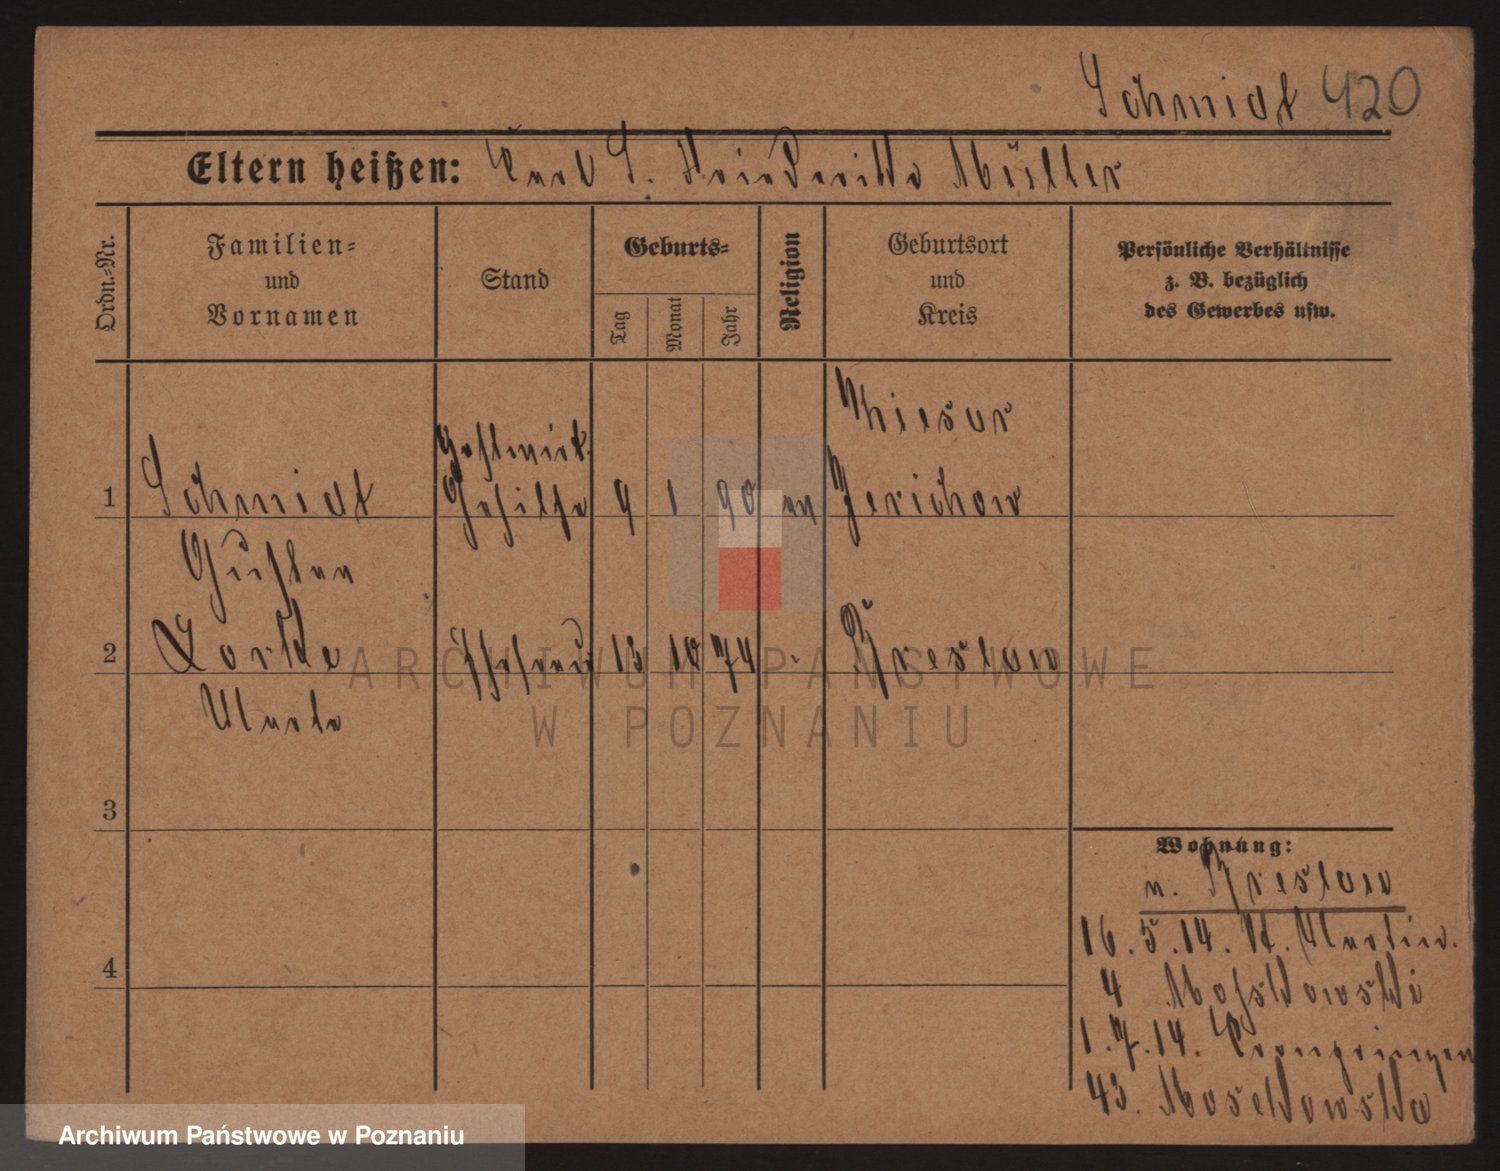 Schmidt 420
Eltern heißen: Carl S. Friederikke Müller
Ordn.=Nr.
Familien=
und
Vornamen
Stand
Geburts=
Tag
Monat
Jahr
Religion
Geburtsort
und
Kreis
Persönliche Verhältnisse
z. B. bezüglich
des Gewerbes usw.
1
Schmidt
Gustav
Gastwirt.
Gehilfe
9
1
90
ev
Jerichow
2
Zorkte
Ehefrau
13
10
74
"
Breslau
3
4
Wohnung:
v. Breslau
16.5.14. St. Martin.
4
1.7.14. Cronprinzen
43.
ARCHIWUM PAŃSTWOWE
W POZNANIU
Archiwum Państwowe w Poznaniu